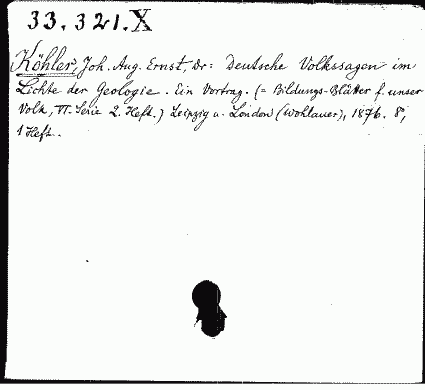 33.321.X
Köhler, Joh. Aug. Ernst, Dr: Deutsche Volkssagen im
Lichte der Geologie. Ein Vortrag. (= Bildungs-Blätter f. unser
Volk, VI. Serie 2. Heft.) Leipzig u. London (Wohlauer), 1876. 8°,
1 Heft.